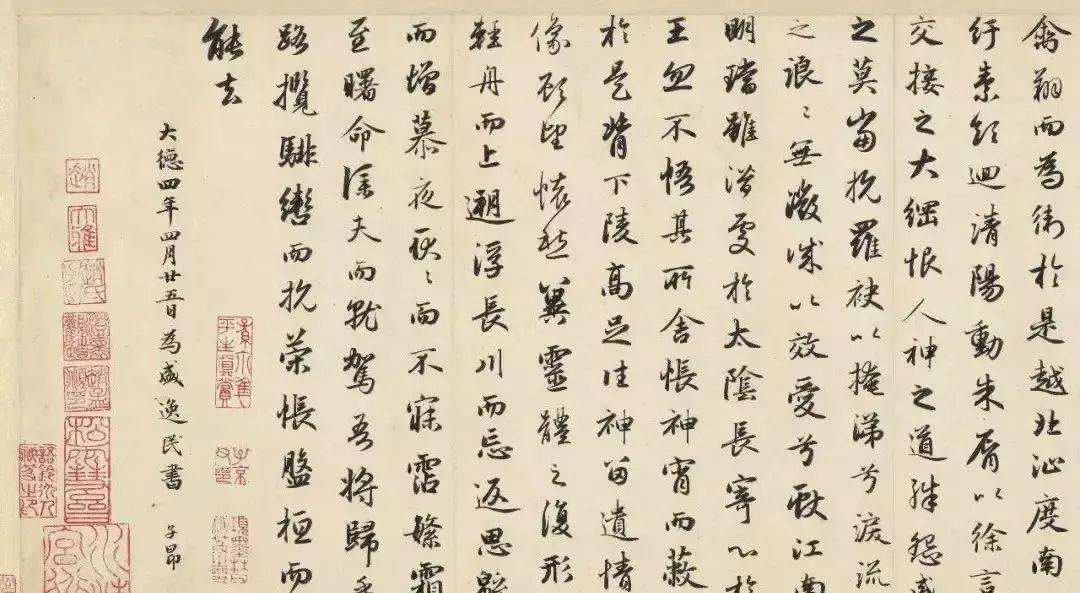 禽翔而為衛於是越北沚度南
紆素領迴清陽動朱脣以徐言
交接之大綱恨人神之道殊怨盛
之莫當抗羅袂以掩涕兮淚流
之浪〻無微誠以效愛兮獻江南
明璫雖潛處於太陰長寄心於
王忽不悟其所舍悵神宵而蔽
於是背下陵高足往神留遺情
像顧望懷愁冀靈體之復形
輕舟而上遡浮長川而忘返思緜
而增慕夜耿〻而不寐霑繁霜
至曙命僕夫而就駕吾將歸乎
路攬騑轡而抗策悵盤桓而
能去
大德四年四月廿五日為盛逸民書 子昂
子京父印
項墨林父秘笈之印